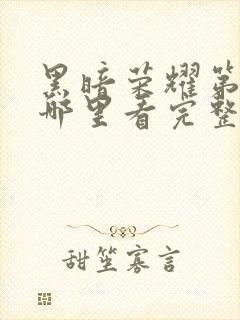 黑暗荣耀第
哪里看完整
甜笙寡言